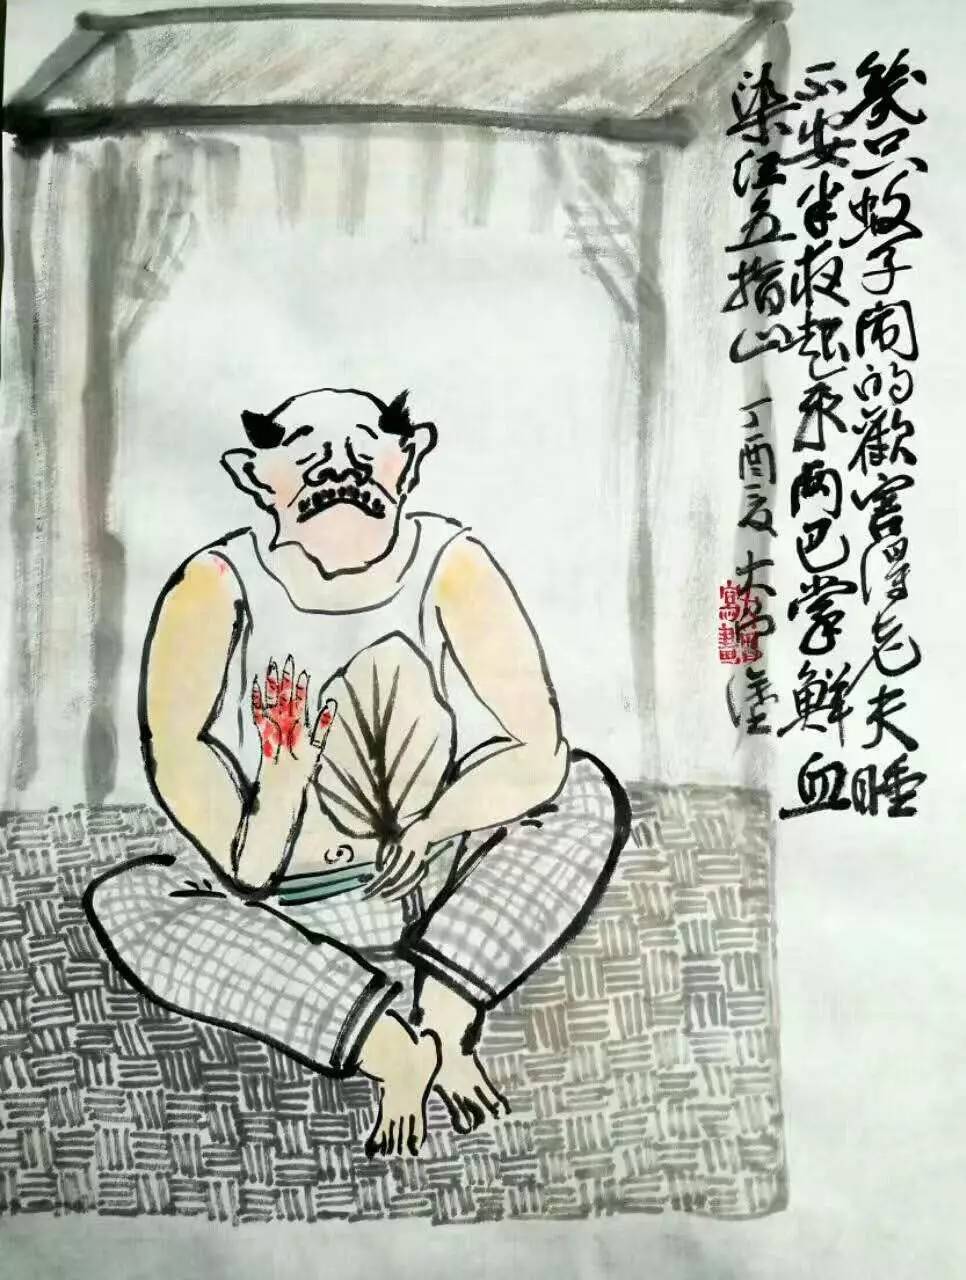 幾只蚊子闹的歡害得老夫睡
不安半夜起来两巴掌鮮血
染红五指山 丁酉夏 大